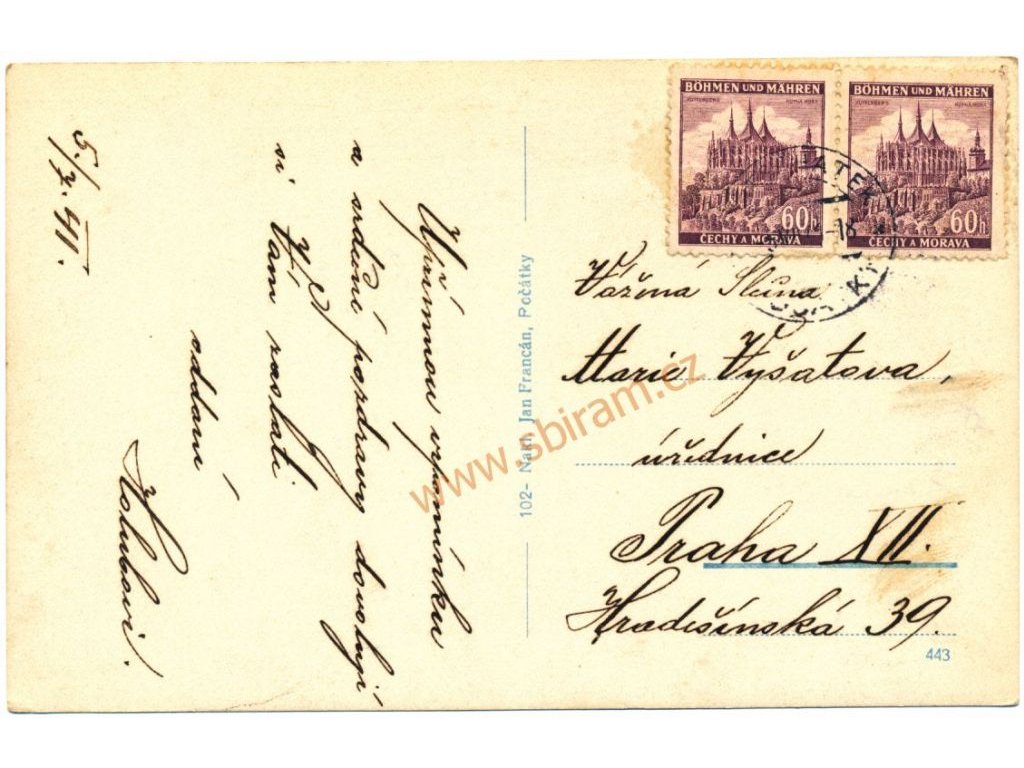 5./7. 41.
Upřímnou vzpomínku
a srdečné pozdravy dovolují
si Vám zaslati
oddaní
Holubovi.
102- Nakl. Jan Francán, Počátky
BÖHMEN UND MÄHREN
KUTTENBERG KUTNÁ HORA
60h
ČECHY A MORAVA
BÖHMEN UND MÄHREN
KUTTENBERG KUTNÁ HORA
60h
ČECHY A MORAVA
Vážená Slečna
Marie Vyšatova,
úřednice
Praha XII.
Hradešínská 39.
443
www.sbiram.cz